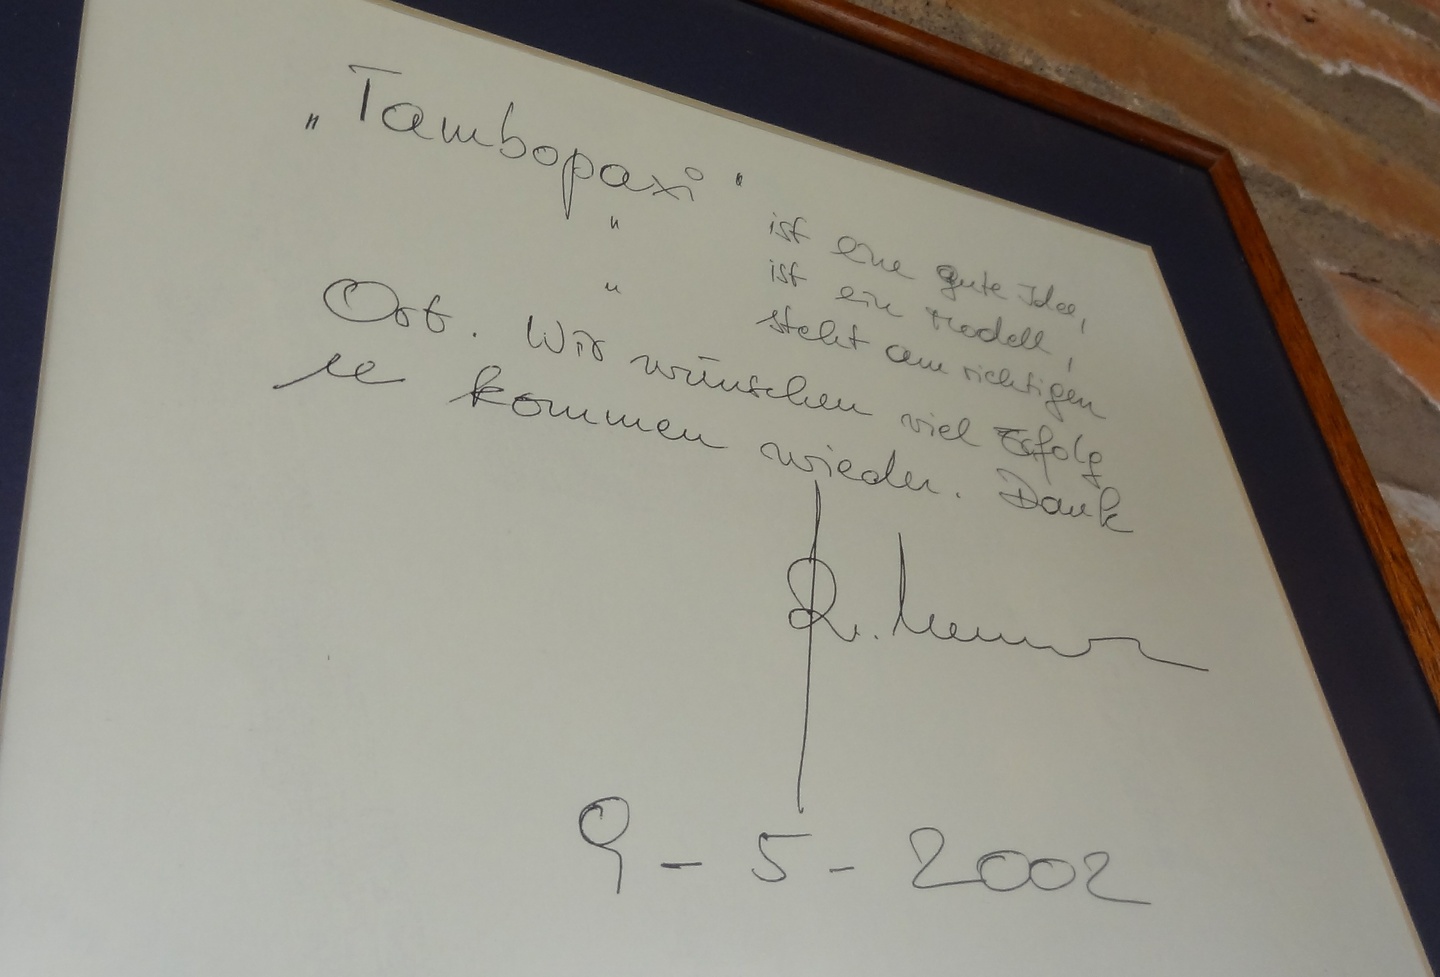 „Tambopaxi"
" ist eine gute Idee,
" ist ein Modell,
steht am richtigen
Ort. Wir wünschen viel Erfolg
kommen wieder. Dank
R.
9-5-2002